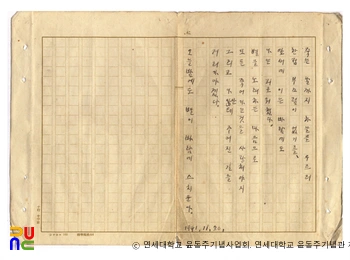 죽는 날까지 하늘을 우르러
한점 부끄럼이 없기를,
잎새에 이는 바람에도
나는 괴로워했다.
별을 노래하는 마음으로
모든 죽어가는것을 사랑해야지
그리고 나안테 주어진 길을
거러가야겠다.
오늘밤에도 별이 바람에 스치운다.
1941.11.20.
© 연세대학교 윤동주기념사업회, 연세대학교 윤동주기념관